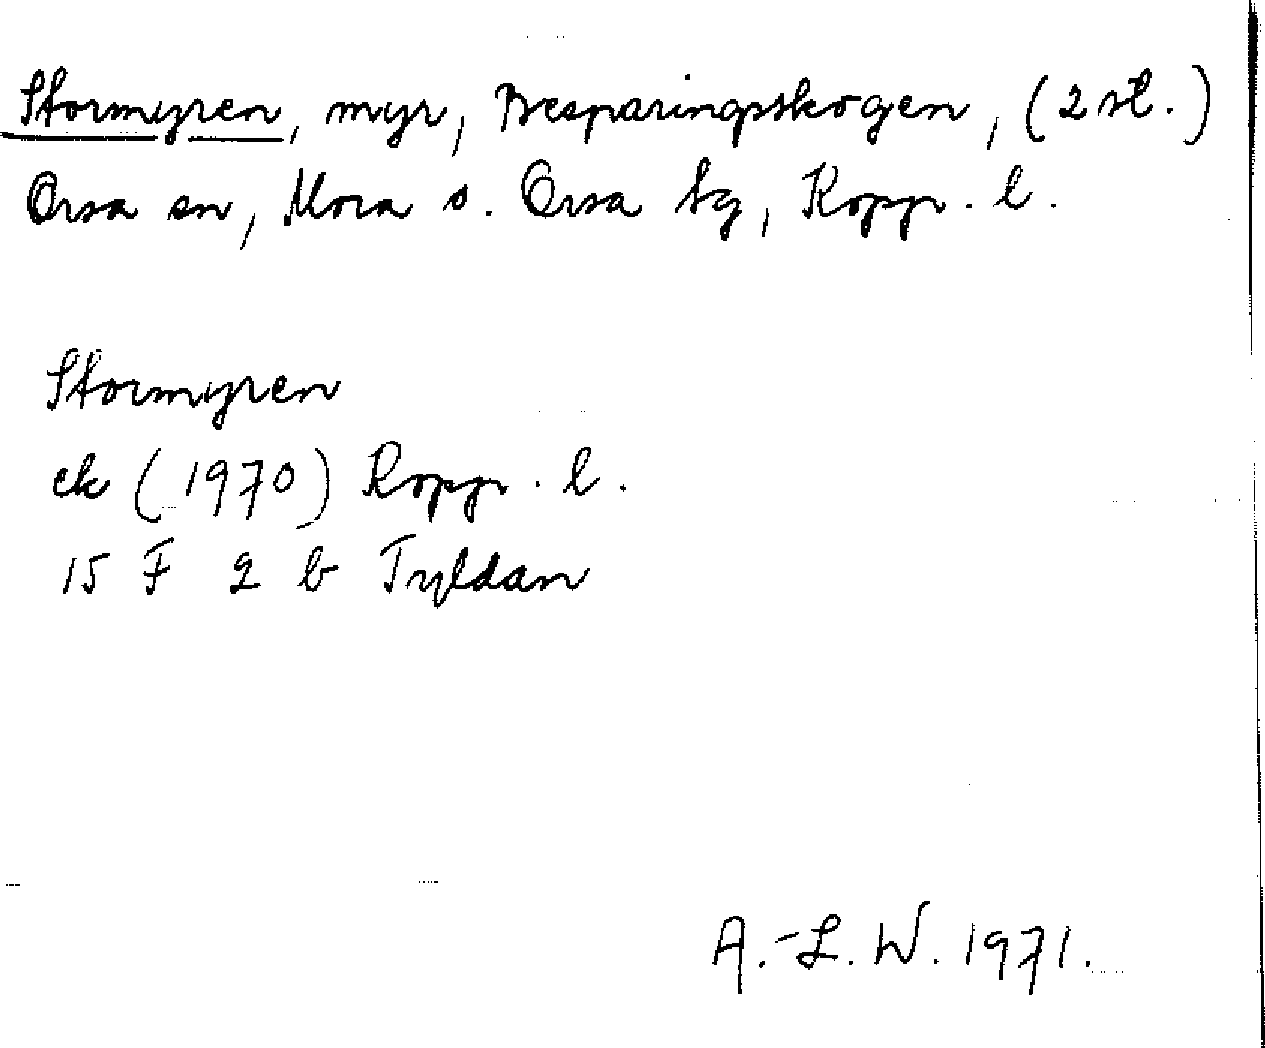 Stormyren, myr, Besparingsskogen, (2 st.)
Orsa sn, Mora o. Orsa tg, Kopp. l.
Stormyren
ek (1970) Kopp. l.
15 F 2 b Tyldan
A.-L. W. 1971.